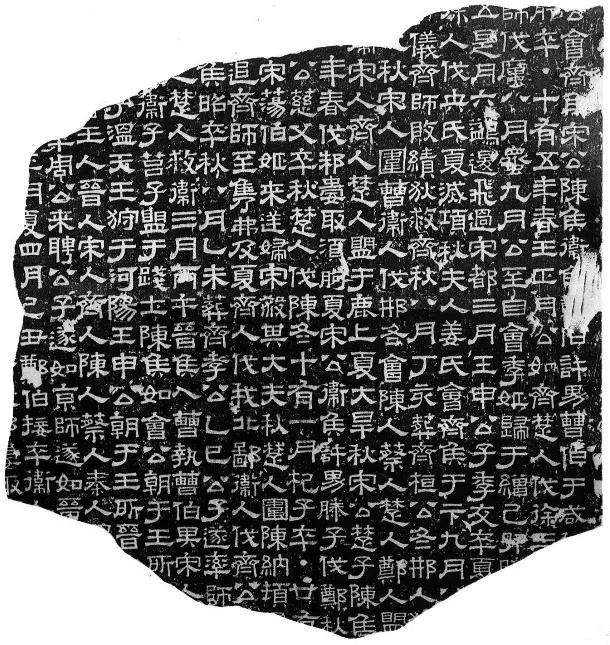 公會齊侯宋公陳侯衛侯伯許男曹伯于咸
卒·十有五年春王正月公如齊楚人伐徐
師伐厲八月螽九月公至自會季姬歸于繒己卯晦
五是月六鶂退飛過宋都三月壬申公子季友卒夏
徐人伐英氏夏滅項秋夫人姜氏會齊侯于卞九月
儀齊師敗績狄救齊秋八月丁亥葬齊桓公冬邢人
秋宋人圍曹衛人伐邢冬會陳人蔡人楚人鄭人盟
宋人齊人楚人盟于鹿上夏大旱秋宋公楚子陳侯
年春伐邾婁取須朐夏宋公衛侯許男滕子伐鄭秋
公慈父卒秋楚人伐陳冬十有一月杞子卒·廿有
宋蕩伯姬來逆婦宋殺其大夫秋楚人圍陳納頓
追齊師至巂弗及夏齊人伐我北鄙衛人伐齊公
侯昭卒秋八月乙未葬齊孝公乙巳公子遂率師
人楚人救衛三月丙午晉侯入曹執曹伯畀宋人
衛子莒子盟于踐土陳侯如會公朝于王所
于溫天王狩于河陽壬申公朝于王所晉
王人晉人宋人齊人陳人蔡人秦人
年周公來聘公子遂如京師遂如晉
月夏四月己丑鄭伯接卒衛